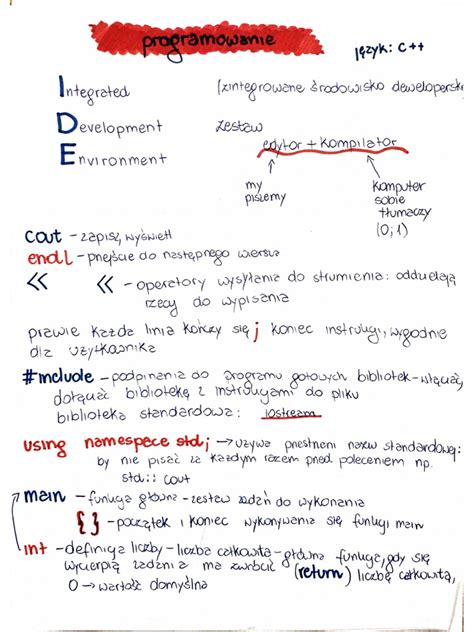 programowanie
język: C++
Integrated (zintegrowane środowisko deweloperskie
Development zestaw
edytor + kompilator
Environment
my piszemy
komputer sobie tłumaczy (0;1)
cout - zapisz, wyświetl
endl - przejście do następnego wiersza
<< << - operatory wysyłania do strumienia: oddzielają
rzecy do wypisania
prawie każda linia kończy się ; koniec instrukcji, wygodnie
dla użytkownika
#include - podpinania do programu gotowych bibliotek - włączać,
dołączać bibliotekę z instrukcjami do pliku
biblioteka standardowa: iostream
using namespece std; → używa przestrzeni nazw standardowej:
by nie pisać za każdym razem przed poleceniem np.
std:: cout
main - funkcja główna - zestaw zadań do wykonania
{ } - początek i koniec wykonywania się funkcji main
int - definicja liczby - liczba całkowita - główna funkcja, gdy się
wyczerpią zadania ma zwrócić (return) liczbę całkowitą,
0 → wartość domyślna